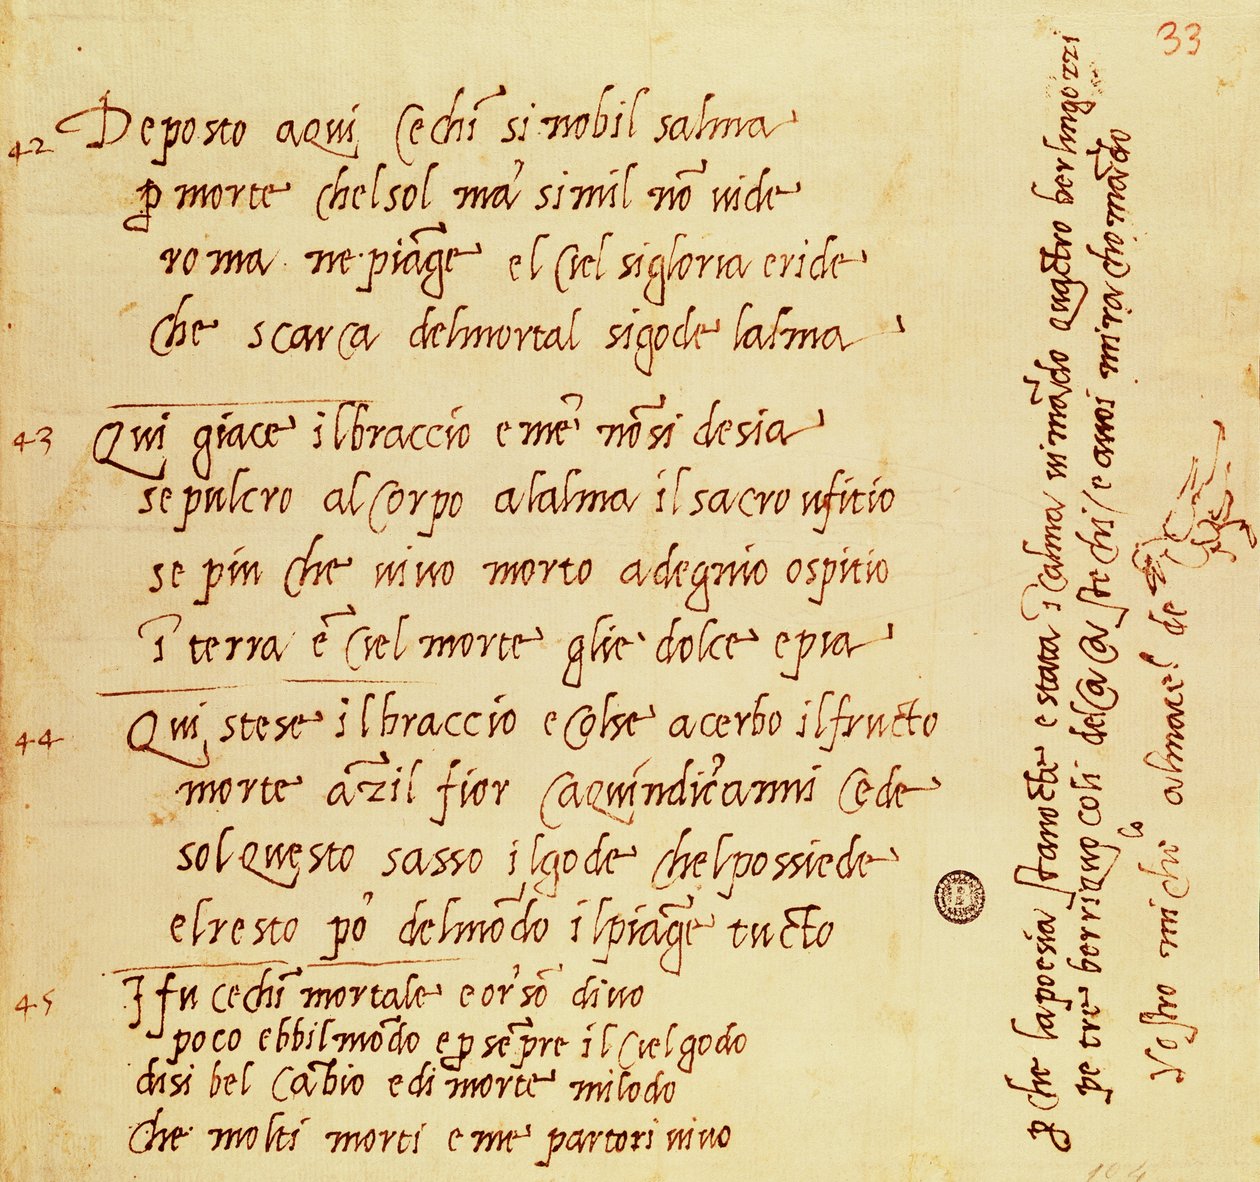 33
42 Deposto aqui Cechī si nobil salma
p̱ morte chel sol ma' simil nō uide
roma ne piāge el ciel si gloria e ride
che scarca del mortal si gode lalma
43 Qui giace il braccio e me' nō si desia
sepulcro al corpo a lalma il sacro ufitio
se piu che uiuo morto a degnio ospitio
ī terra ē ciel morte glie dolce e pia
44 Qui stese il braccio e colse acerbo il fructo
morte āzil fior ca quindic'anni cede
sol questo sasso il gode chel possiede
el resto po' del mōdo il piāge tucto
45 I fu cechī mortale e or' sō diuo
poco ebbil mōdo e p̱ sēpre il ciel godo
di si bel cābio e di morte mi lodo
che molti morti e me partori uiuo
p̱che la poesia stanocte e stata ī calma ui mādo quactro berlingozzi
pe tre berriquocoli del ca ca stechi e a uoi mi racho mādo
Vostro michelº al macel de
104